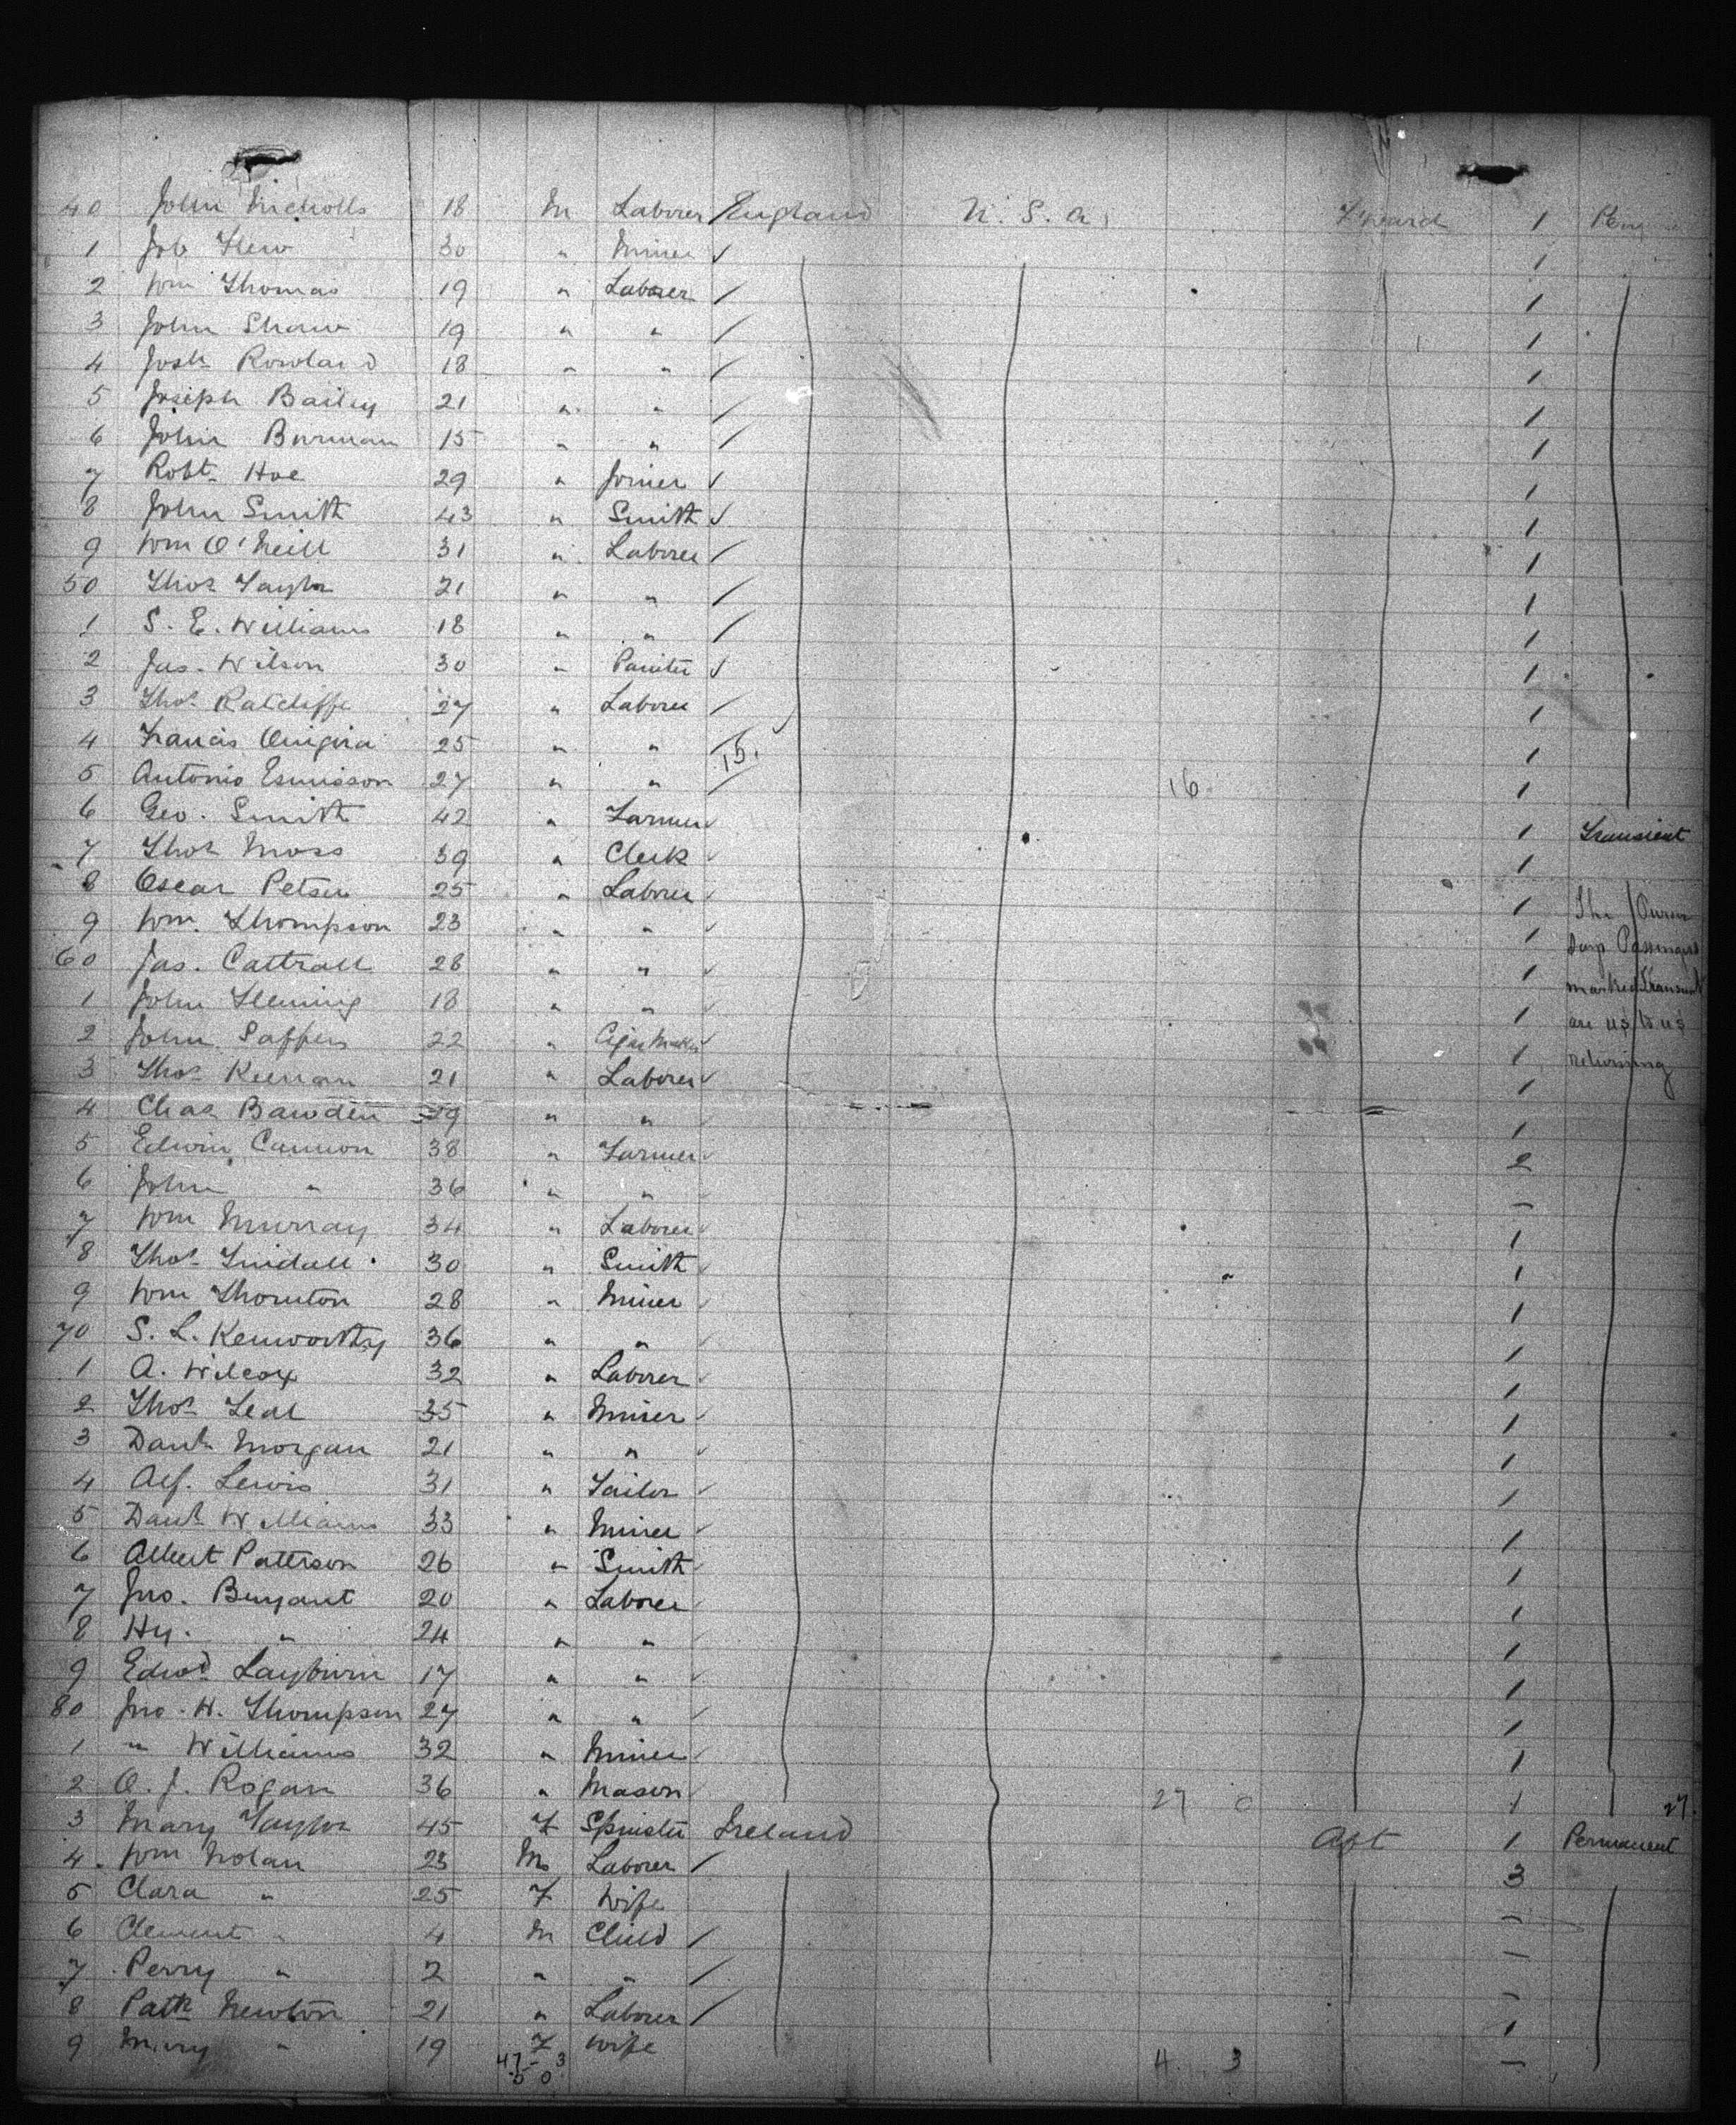 40 John Nicholls 18 M Laborer England U.S.A. Forward 1
1 Job 30 " Miner ✓ 1
2 Wm Thomas 19 " Laborer / 1
3 John Shaw 19 " " / 1
4 Josh Rowland 18 " " / 1
5 Joseph Bailey 21 " " / 1
6 John Burman 15 " " / 1
7 Robt Hoe 29 " Joiner ✓ 1
8 John Smith 43 " Smith ✓ 1
9 Wm O'Neill 31 " Laborer / 1
50 Thos Taylor 21 " " / 1
1 S. E. Williams 18 " " / 1
2 Jas. Wilson 30 " Painter ✓ 1
3 Thos Ratcliffe 27 " Laborer / 1
4 Francis 25 " " 15. 1
5 Antonio 27 " " / 16 1
6 Geo. Smith 42 " Farmer ✓ 1 Transient
7 Thos Moss 39 " Clerk ✓ 1
8 Oscar Petsen 25 " Laborer ✓ 1 The
9 Wm. Thompson 23 " " ✓ 1 Passengers
60 Jas. Cattrall 28 " " ✓ 1 marked Transient
1 John Fleming 18 " " ✓ 1 are US to US
2 John Saffers 22 " Cigar Maker ✓ 1 returning
3 Thos Keenan 21 " Laborer ✓ 1
4 Chas Bawden 29 " " ✓ 1
5 Edwin Cannon 38 " Farmer ✓ 2
6 John " 36 " " ✓ —
7 Wm Murray 34 " Laborer ✓ 1
8 Thos Tindall 30 " Smith ✓ 1
9 Wm Thornton 28 " Miner ✓ 1
70 S. L. Kenworthy 36 " " ✓ 1
1 A. Wilcox 32 " Laborer ✓ 1
2 Thos Leal 35 " Miner ✓ 1
3 Danl Morgan 21 " " ✓ 1
4 Alf. Lewis 31 " Tailor ✓ 1
5 Danl Williams 33 " Miner ✓ 1
6 Albert Pattison 26 " Smith ✓ 1
7 Jno. Bunyant 20 " Laborer ✓ 1
8 Hy. " 24 " " ✓ 1
9 Edwd Layburn 17 " " ✓ 1
80 Jno. H. Thompson 27 " " ✓ 1
1 " Williams 32 " Miner ✓ 1
2 O. J. Rogan 36 " Mason ✓ 27 0 1 27
3 Mary Taylor 45 F Spinster Ireland Aft 1 Permanent
4 Wm Nolan 23 M Laborer / 3
5 Clara " 25 F Wife —
6 Clement " 4 M Child / —
7 Perry " 2 " " / —
8 Patk Newton 21 " Laborer / 1
9 Mary " 19 F Wife —
47 - 3 4 3
50